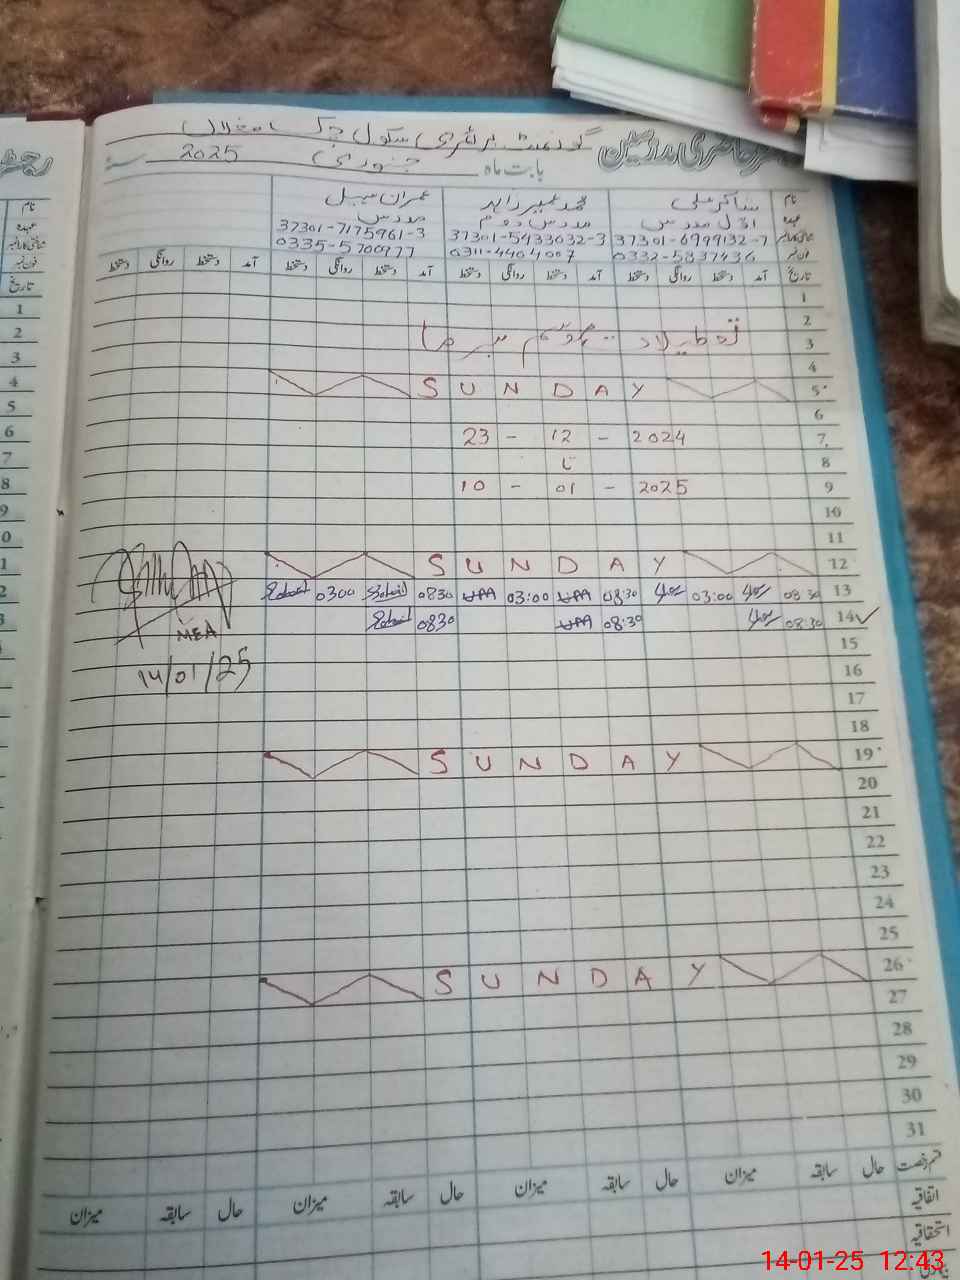 گورنمنٹ پرائمری سکول چک مغلاں
رجسٹر حاضری مدرسین
بابت ماہ جنوری 2025
نام
شاکر علی
محمد عمیر زاہد
عمران سہیل
عہدہ
اوّل مدرس
مدرس دوم
مدرس
37301-6999132-7
37301-5433032-3
37301-7175961-3
فون نمبر
0332-5837436
0311-4404007
0335-5700977
تاریخ آمد دستخط روانگی دستخط آمد دستخط روانگی دستخط آمد دستخط روانگی دستخط آمد دستخط روانگی دستخط
1
2
3 تعطیلات موسم سرما
4
5 SUNDAY
6
7 23 - 12 - 2024
8 تا
9 10 - 01 - 2025
10
11
12 SUNDAY
13 08:30 03:00 08:30 03:00 0830 0300
14 08:30 08:30 0830
MEA
14/01/25
15
16
17
18
19 SUNDAY
20
21
22
23
24
25
26 SUNDAY
27
28
29
30
31
قسم رخصت حال سابقہ میزان حال سابقہ میزان حال سابقہ میزان حال سابقہ میزان
اتفاقیہ
استحقاقیہ
14-01-25 12:43